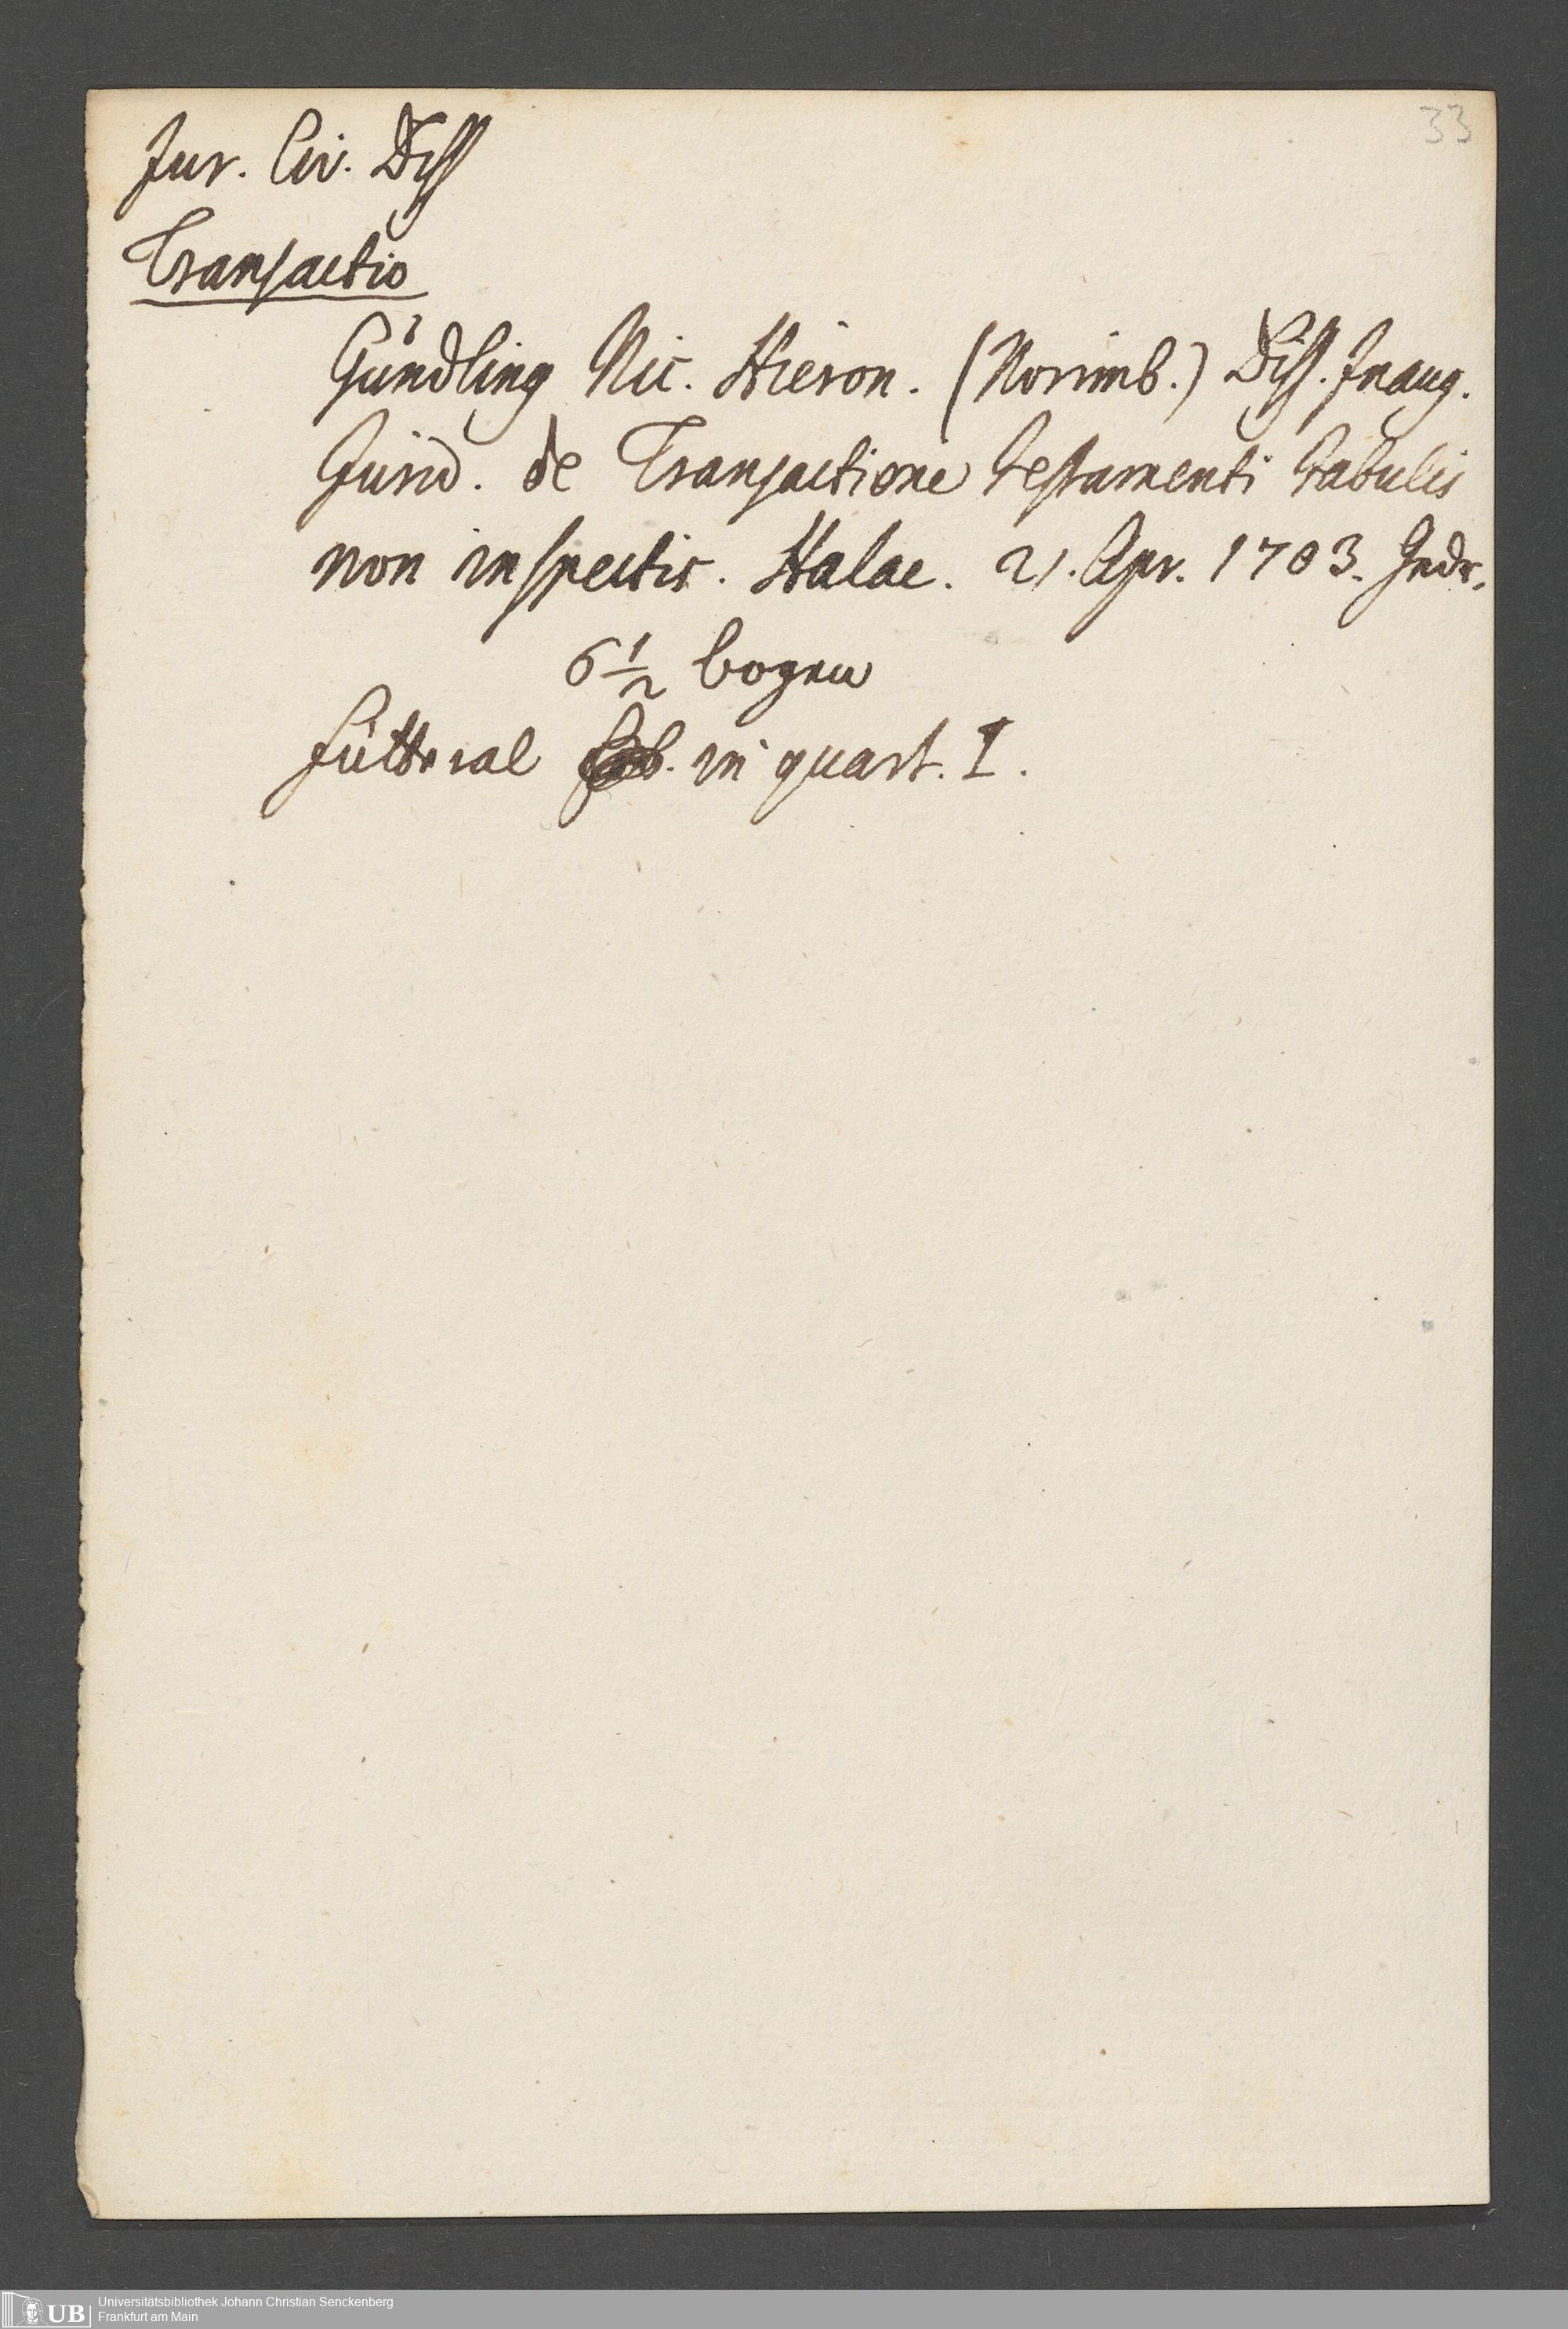 33
Jur. Civ. Diss
Transactio
Gundling Nic. Hieron. (Norimb.) Diss. Inaug.
Jurid. de Transactione testamenti tabulis
non inspectis. Halae. 21. Apr. 1703. Gedr.
6 1/2 bogen
Futteral in quart. I.
UB Universitätsbibliothek Johann Christian Senckenberg
Frankfurt am Main